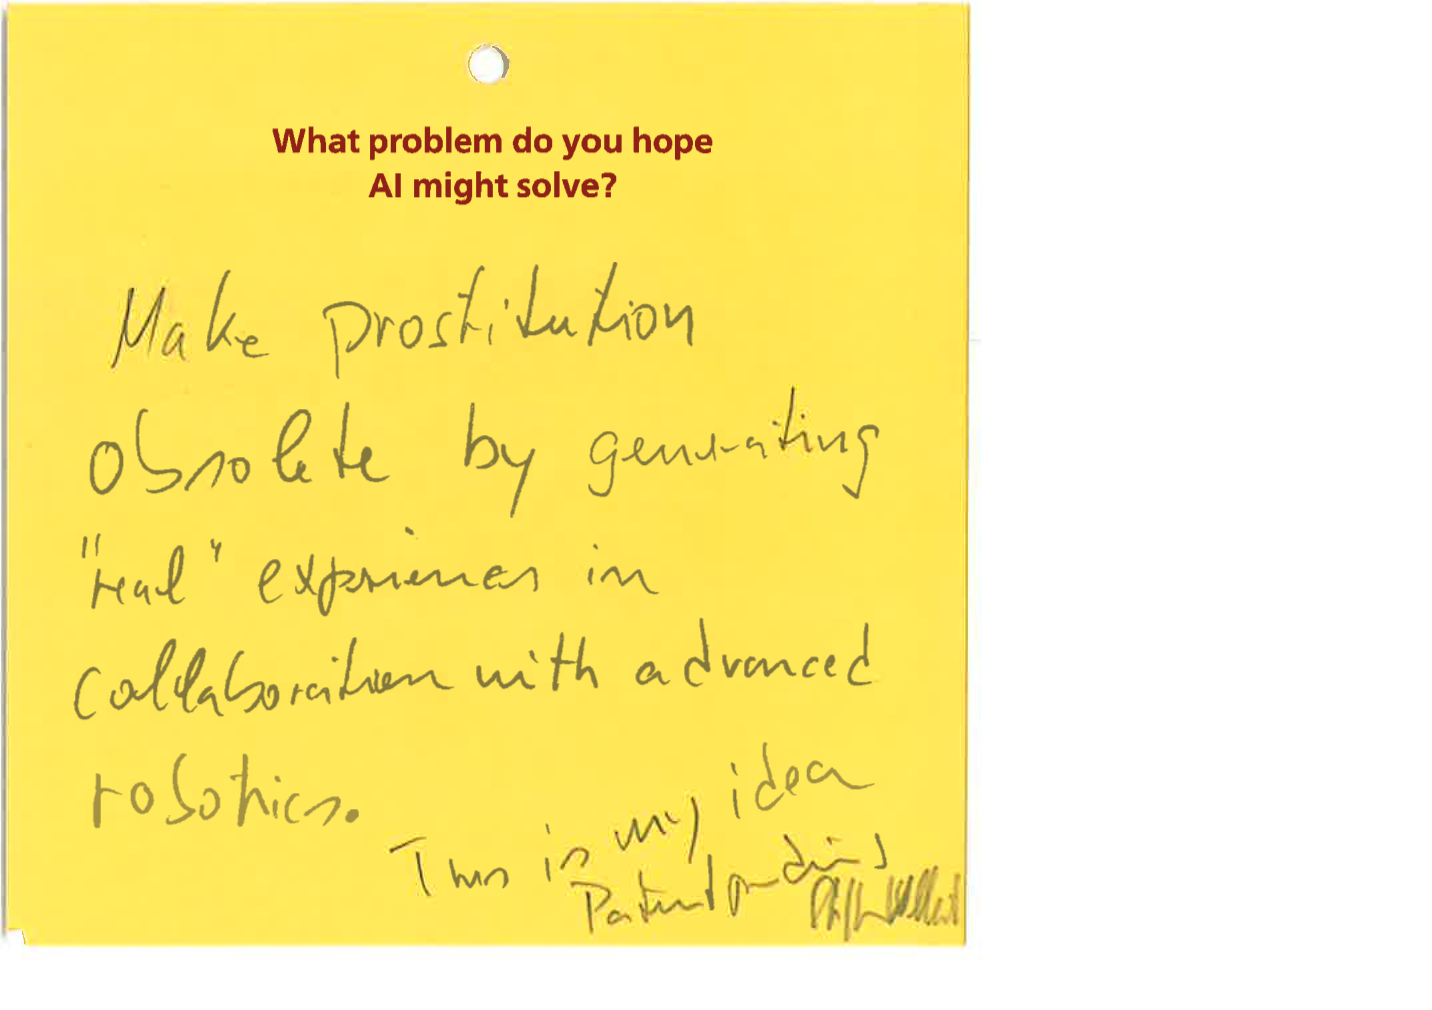 What problem do you hope
AI might solve?
Make prostitution
obsolete by generating
"real" experiences in
collaboration with advanced
robotics.
This is my idea
Patent pending